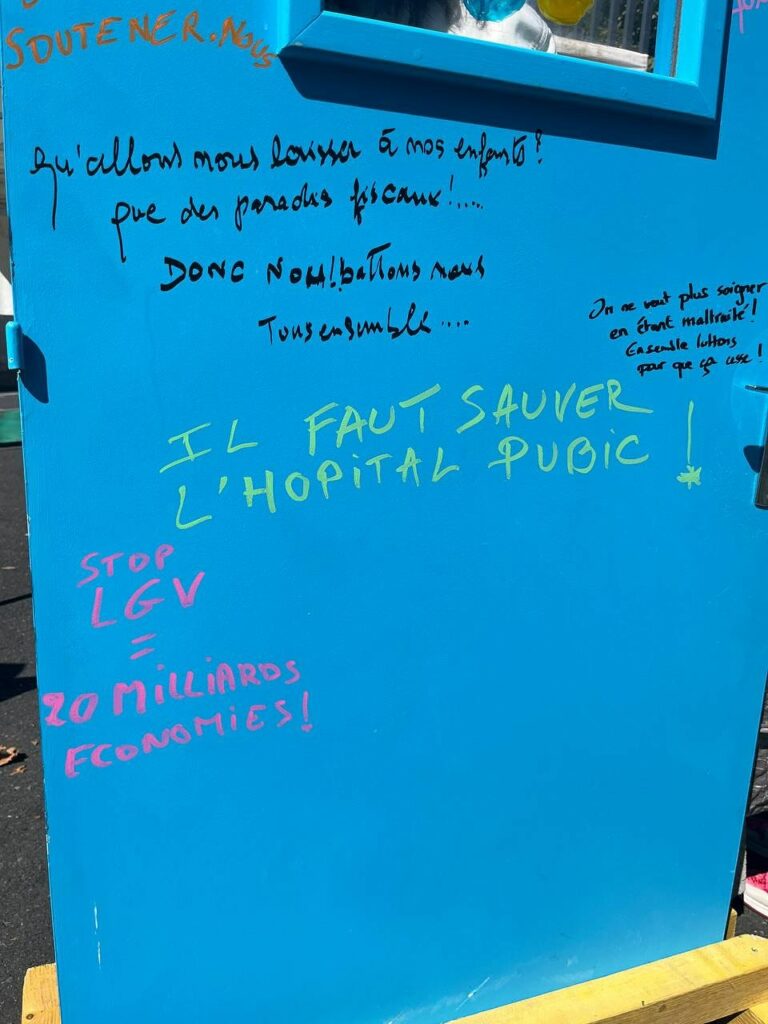 SOUTENER.Nous
Qu'allons nous laisser à nos enfants?
que des paradis fiscaux!....
DONC NOUS! battons nous
Tous ensemble....
On ne veut plus soigner
en étant maltraité!
Ensemble luttons
pour que ça cesse!
IL FAUT SAUVER
L'HOPITAL PUBIC !
STOP
LGV
=
20 MILLIARDS
ECONOMIES!